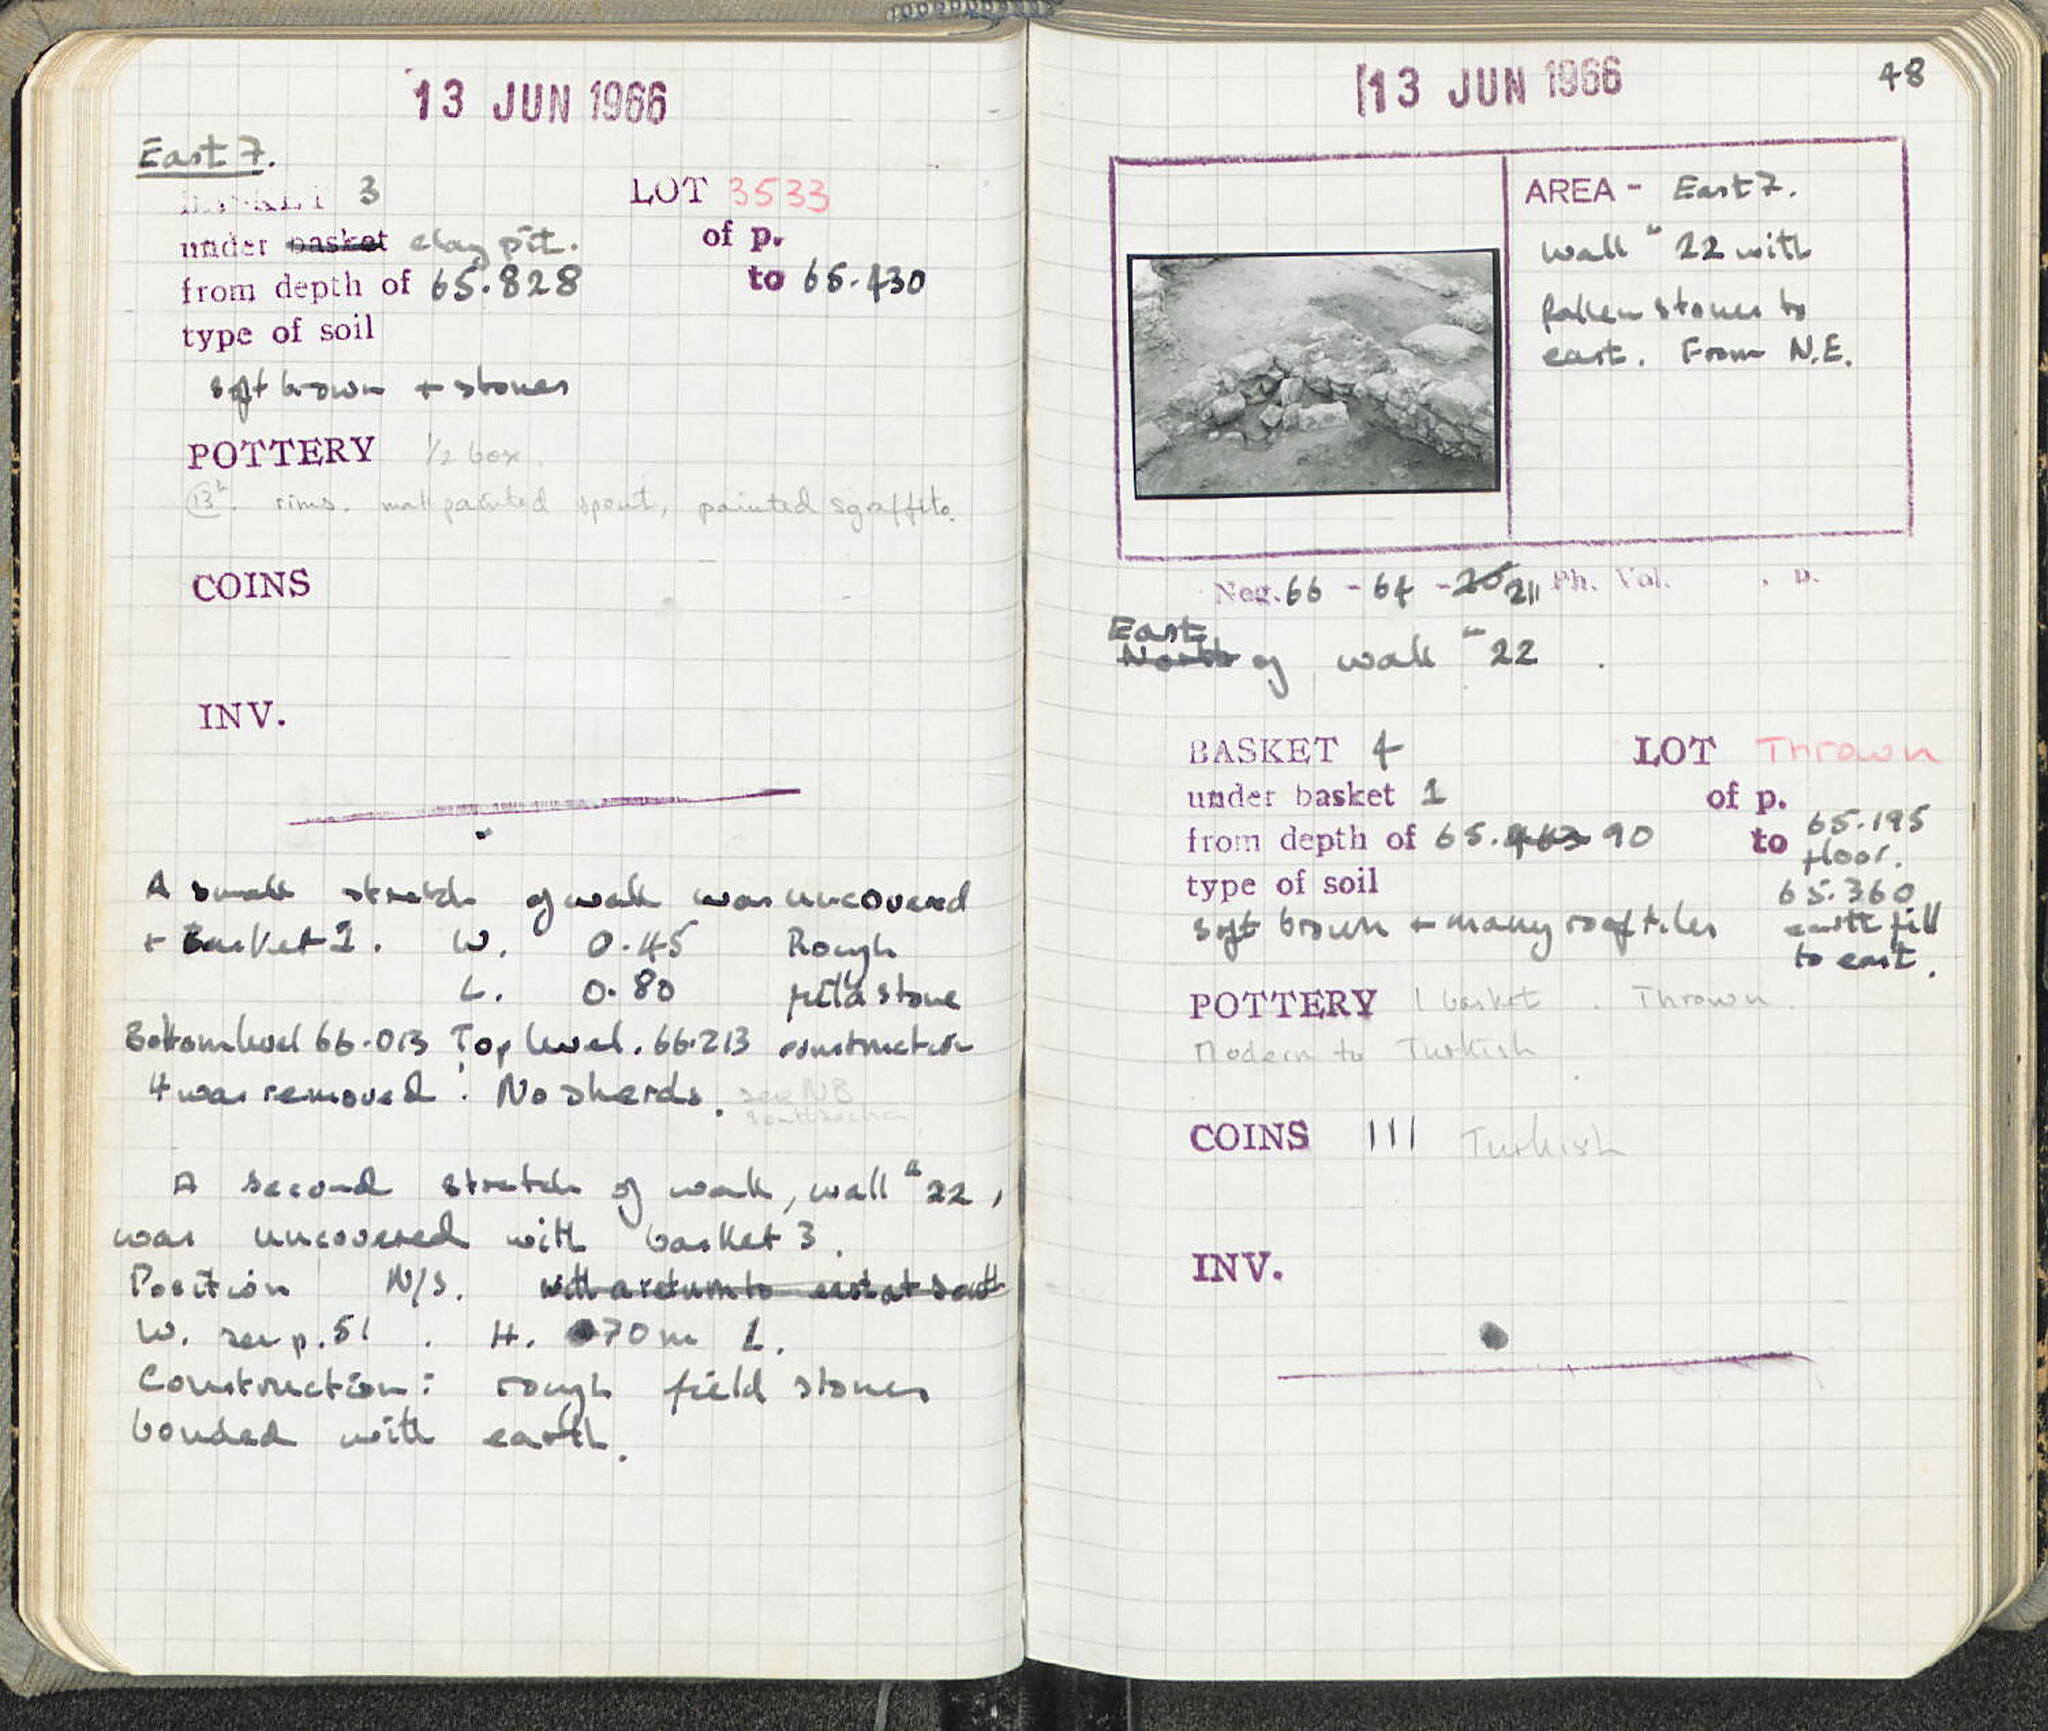 13 JUN 1966
East 7.
BASKET 3 LOT 3533
under basket clay pit. of p.
from depth of 65.828 to 65.430
type of soil
soft brown + stones
POTTERY 1/2 box.
13th. rims. matt painted spout, painted sgraffito.
COINS
INV.
A small stretch of wall was uncovered
+ basket 1. W. 0.45 Rough
L. 0.80 field stone
Bottom level 66.013 Top level. 66.213 construction
It was removed. No sherds. see NB
A second stretch of wall, wall "22,
was uncovered with basket 3.
Position N/S. with a return to east at south
W. see p. 51. H. 70m L.
Construction: rough field stones
bonded with earth.
13 JUN 1966
48
AREA - East 7.
wall "22 with
fallen stones to
east. From N.E.
Neg. 66 - 64 - 20 21 Ph. Vol. . p.
East
North of wall "22
BASKET 4 LOT Thrown
under basket 1 of p.
from depth of 65.463 90 to 65.195
floor.
type of soil 65.360
soft brown + many roof tiles earth fill
to east.
POTTERY 1 basket. Thrown.
Modern to Turkish
COINS III Turkish
INV.